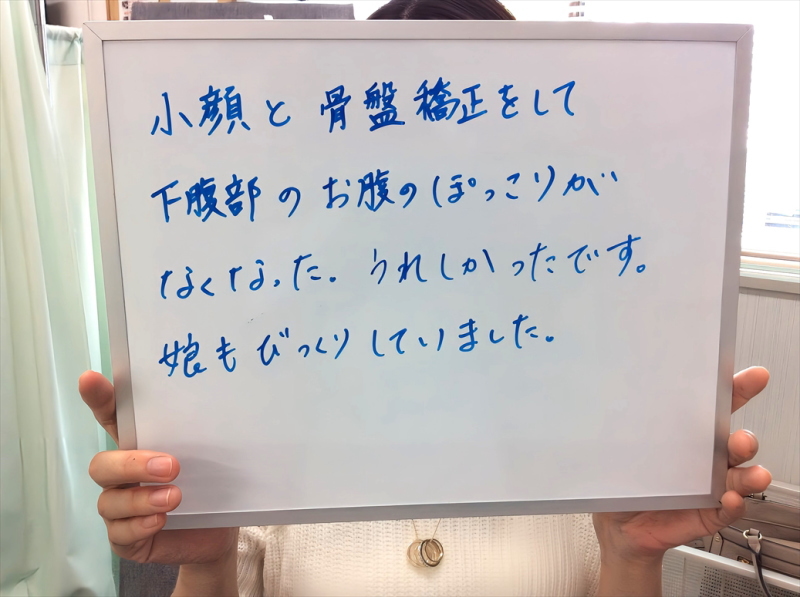 小顔と骨盤矯正をして
下腹部のお腹のぽっこりが
なくなった。うれしかったです。
娘もびっくりしていました。